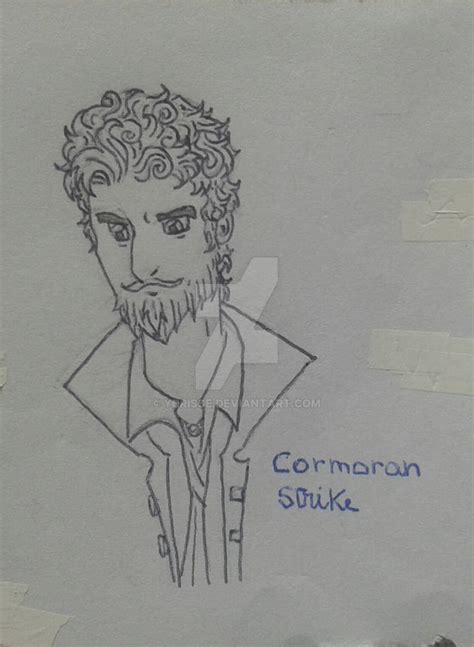 © YERISSE.DEVIANTART.COM
Cormoran
Strike